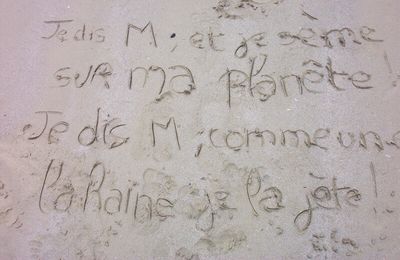 Je dis M, et je sème
sur ma planète !
Je dis M, comme une
la haine je la jète !